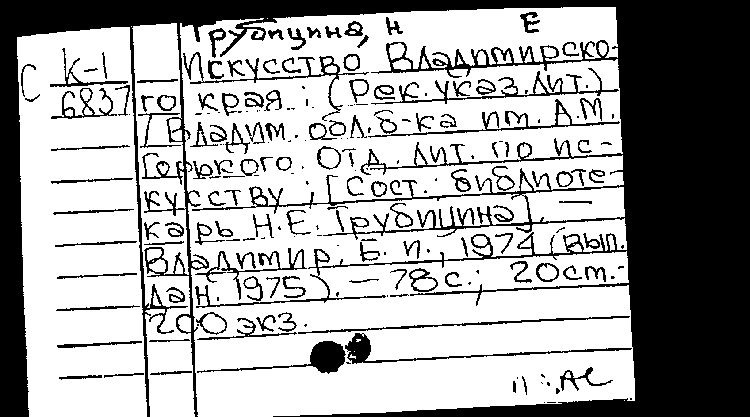 Трубицина, Н Е
С К-1 Искусство Владимирско-
6837 го края : (Рек. указ. лит.)
/ Владим. обл. б-ка им. А.М.
Горького. Отд. лит. по ис-
кусству ; [Сост.: библиоте-
карь Н.Е. Трубицина]. —
Владимир, Б. и., 1974 (вып.
дан. 1975). — 78 с.; 20 ст.-
200 экз.